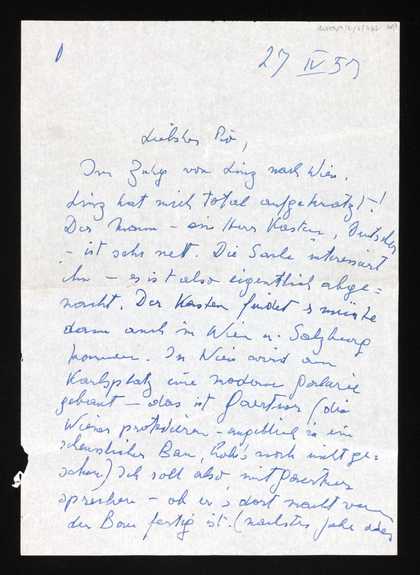 27 IV 57
Liebster Pio,
Im Zuge von Linz nach Wien.
Linz hat mich total aufgekratzt!
Der Mann – ein Herr Kasten, Deutscher
– ist sehr nett. Die Sache interessiert
ihn – es ist also eigentlich abge=
macht. Der Kasten findet es müsste
dann auch in Wien u. Salzburg
kommen. In Wien wird am
Karlsplatz eine moderne Galerie
gebaut – das ist Goertner (die
Wiener protestieren – angeblich ist es ein
scheusslicher Bau, hab's noch nicht ge=
sehen) Ich soll also mit Goertner
sprechen – ob er's dort macht wenn
der Bau fertig ist. (nächstes Jahr oder